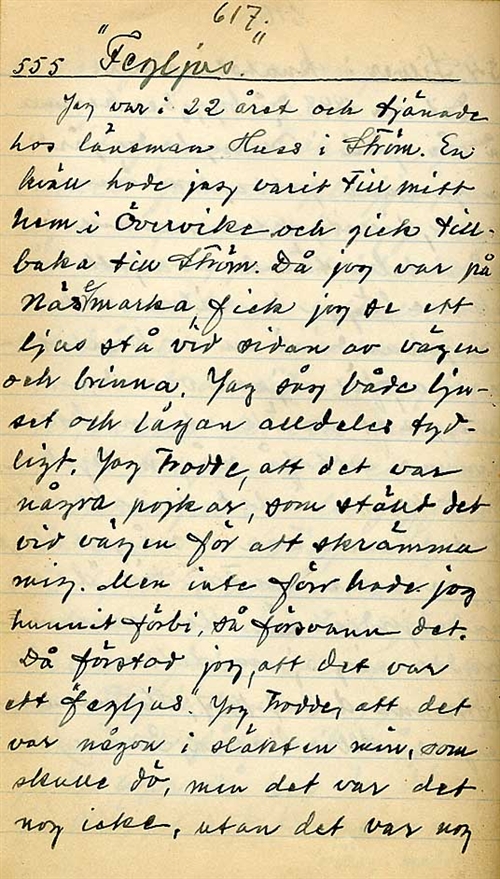 617.
555 "Feyljus."
Jag var i 22 året och tjänade
hos länsman Huss i Ström. En
kväll hade jag varit till mitt
hem i Övervike och gick till-
baka till Ström. Då jag var på
Näsmarka, fick jag se ett
ljus stå vid sidan av vägen
och brinna. Jag såg både lju-
set och lågan alldeles tyd-
ligt. Jag trodde, att det var
några pojkar, som ställt det
vid vägen för att skrämma
mig. Men inte förr hade jag
hunnit förbi, så försvann det.
Då förstod jag, att det var
ett "feyljus". Jag trodde, att det
var någon i släkten min, som
skulle dö, men det var det
nog icke, utan det var nog